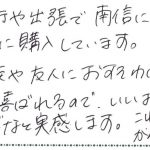 行や出張で南信に
に購入しています。
族や友人におすそわ
喜ばれるので、いいお
だなと実感します。これ
か